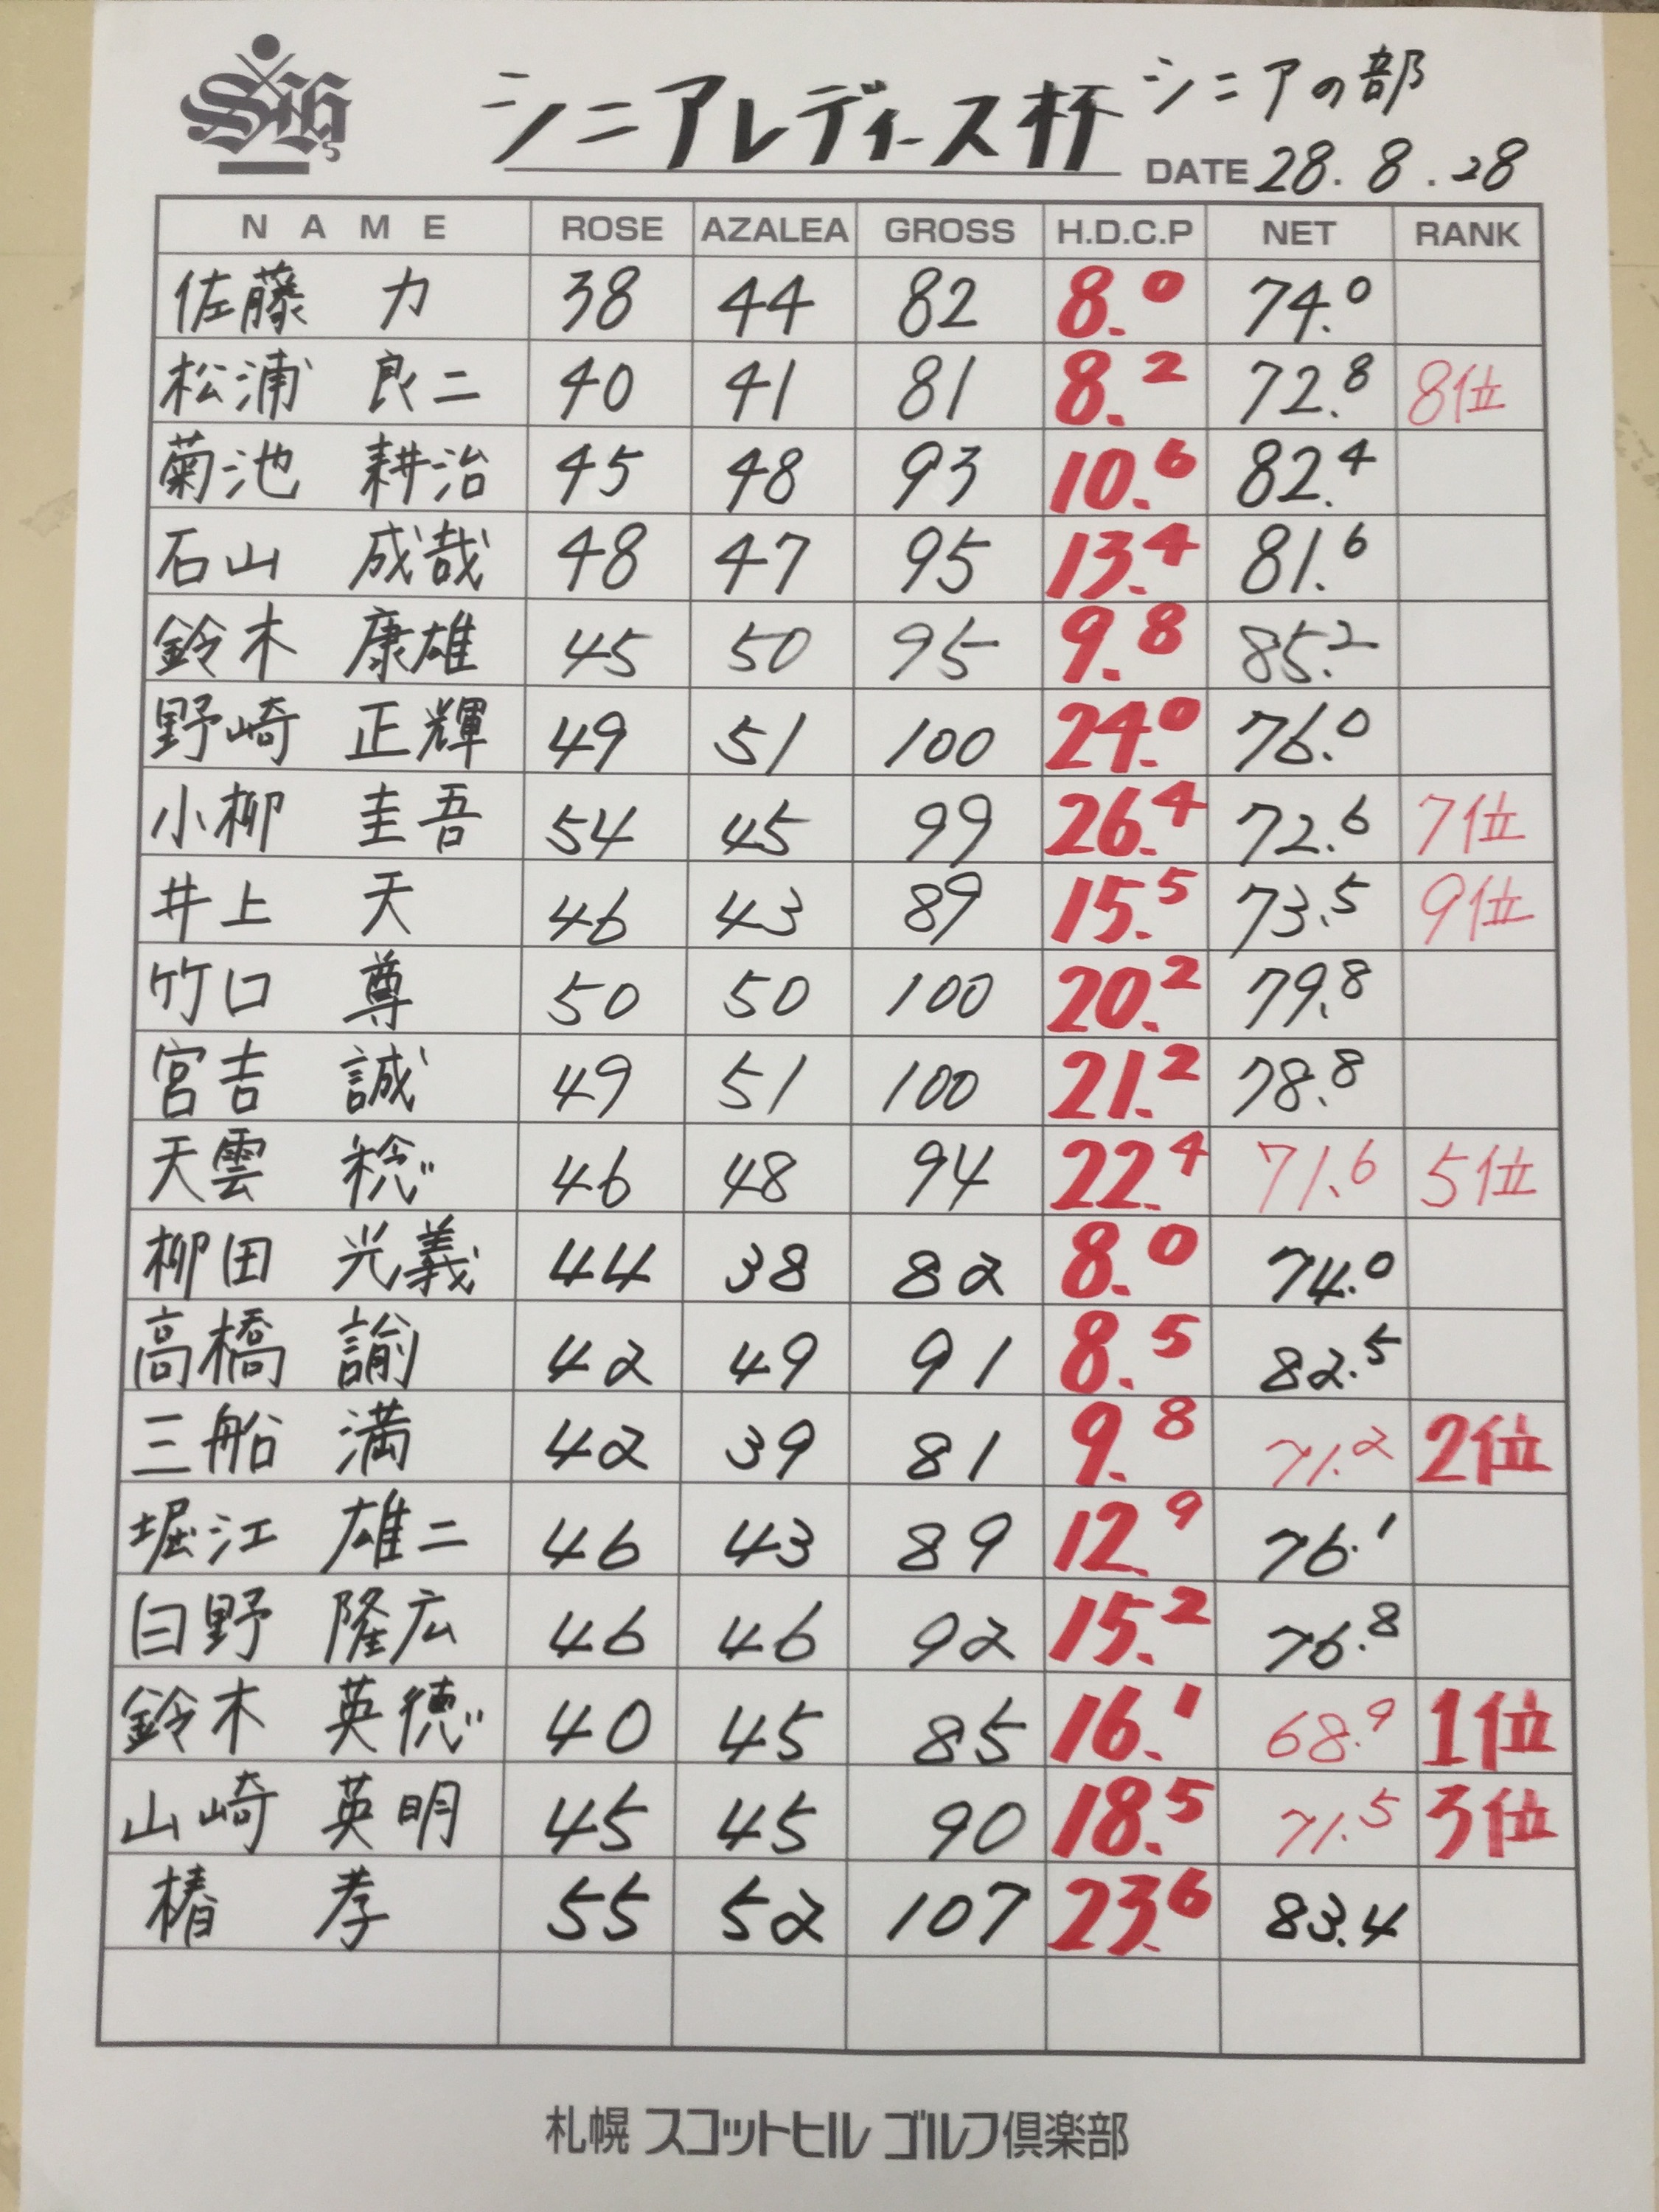 シニアレディース杯 シニアの部
DATE 28.8.28
NAME ROSE AZALEA GROSS H.D.C.P NET RANK
佐藤 力 38 44 82 8.0 74.0
松浦 良二 40 41 81 8.2 72.8 8位
菊池 耕治 45 48 93 10.6 82.4
石山 成哉 48 47 95 13.4 81.6
鈴木 康雄 45 50 95 9.8 85.2
野崎 正輝 49 51 100 24.0 76.0
小柳 圭吾 54 45 99 26.4 72.6 7位
井上 天 46 43 89 15.5 73.5 9位
竹口 尊 50 50 100 20.2 79.8
宮吉 誠 49 51 100 21.2 78.8
天雲 稔 46 48 94 22.4 71.6 5位
柳田 光義 44 38 82 8.0 74.0
高橋 諭 42 49 91 8.5 82.5
三船 満 42 39 81 9.8 71.2 2位
堀江 雄二 46 43 89 12.9 76.1
臼野 隆広 46 46 92 15.2 76.8
鈴木 英徳 40 45 85 16.1 68.9 1位
山崎 英明 45 45 90 18.5 71.5 3位
椿 孝 55 52 107 23.6 83.4
札幌 スコットヒル ゴルフ倶楽部